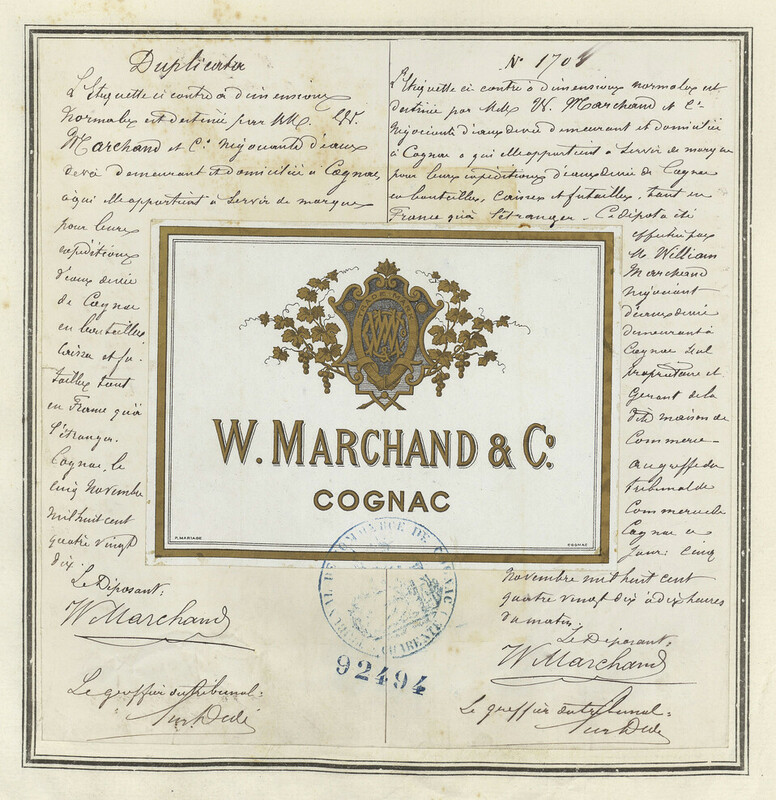 Duplicata
L'Etiquette ci contre à dimensions
normales est destinée par MM. W.
Marchand et Cie négociants d'eaux
de vie demeurant et domiciliés à Cognac,
à qui elle appartient à servir de marque
pour leurs
expéditions
d'eaux de vie
de Cognac
en bouteilles
Caisses et fu-
tailles tant
en France qu'à
l'étranger.
Cognac, le
cinq Novembre
mil huit cent
quatre vingt
dix.
Le Déposant:
W Marchand
Le greffier du tribunal:
No 170
L'Etiquette ci contre à dimensions normales est
destinée par MM. W. Marchand et Cie
Négociants d'eaux de vie demeurant et domiciliés
à Cognac à qui elle appartient à servir de marque
pour leurs expéditions d'eaux de vie de Cognac
en bouteilles, caisses et futailles, tant en
France qu'à l'étranger. Ce dépôt a été
effectué par
M. William
Marchand
négociant
d'eaux de vie
demeurant à
Cognac seul
propriétaire et
Gérant de la
dite maison de
Commerce
au greffe du
tribunal de
Commerce de
Cognac ce
jour: cinq
novembre mil huit cent
quatre vingt dix à dix heures
du matin.
Le Déposant:
W Marchand
Le greffier du tribunal:
W. MARCHAND & Co.
COGNAC
P. MARIAGE
COGNAC
TRIBUNAL DE COMMERCE DE COGNAC
CHARENTE
92494